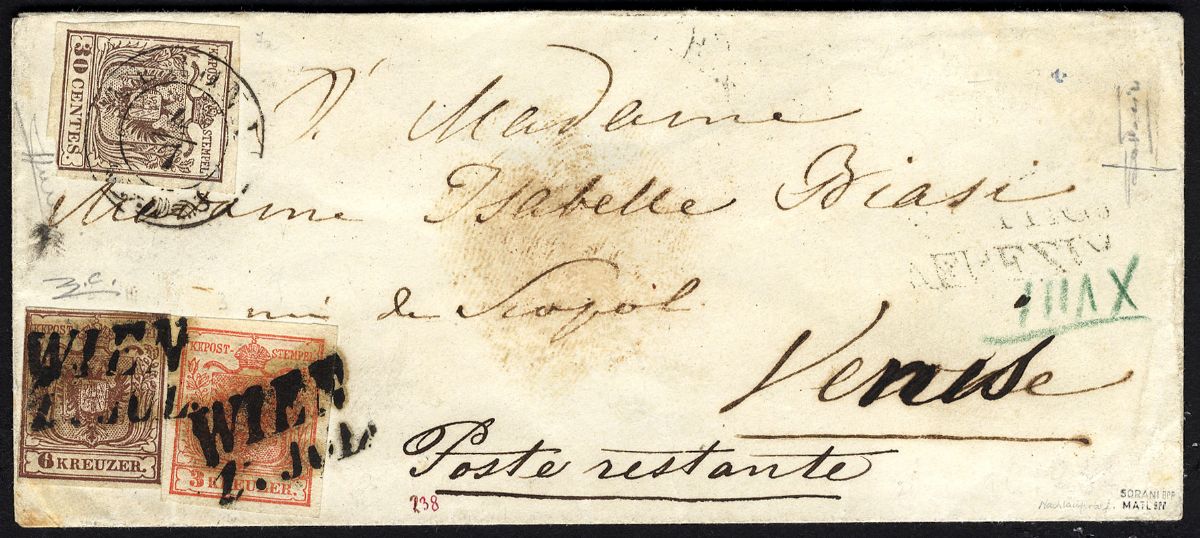 KKPOST-STEMPEL
30 CENTES.
à Madame
Madame Isabelle Biasi
née de
Venise
Poste restante
XVIII
KKPOST-STEMPEL
6 KREUZER.
WIEN
1. JUL.
KKPOST-STEMPEL
3 KREUZER.
WIEN
1. JUL.
VENEZIA
z.c.
238
SORANI BPP
MATL BPP